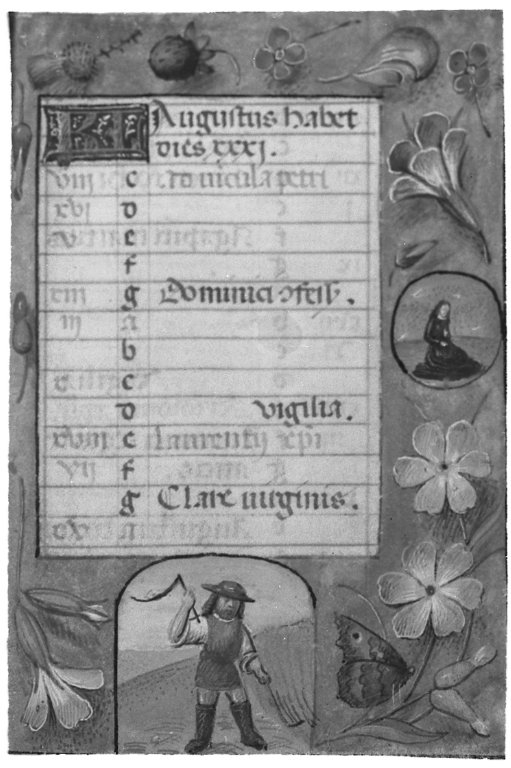 KL Augustus habet
dies xxxj.
viij c Ad vincula petri
xvi d
v e
f
xiij g Dominici ɔfess .
ij a
b
x c
d vigilia.
xviij e Laurentij
vij f
g Clare virginis .
xv a